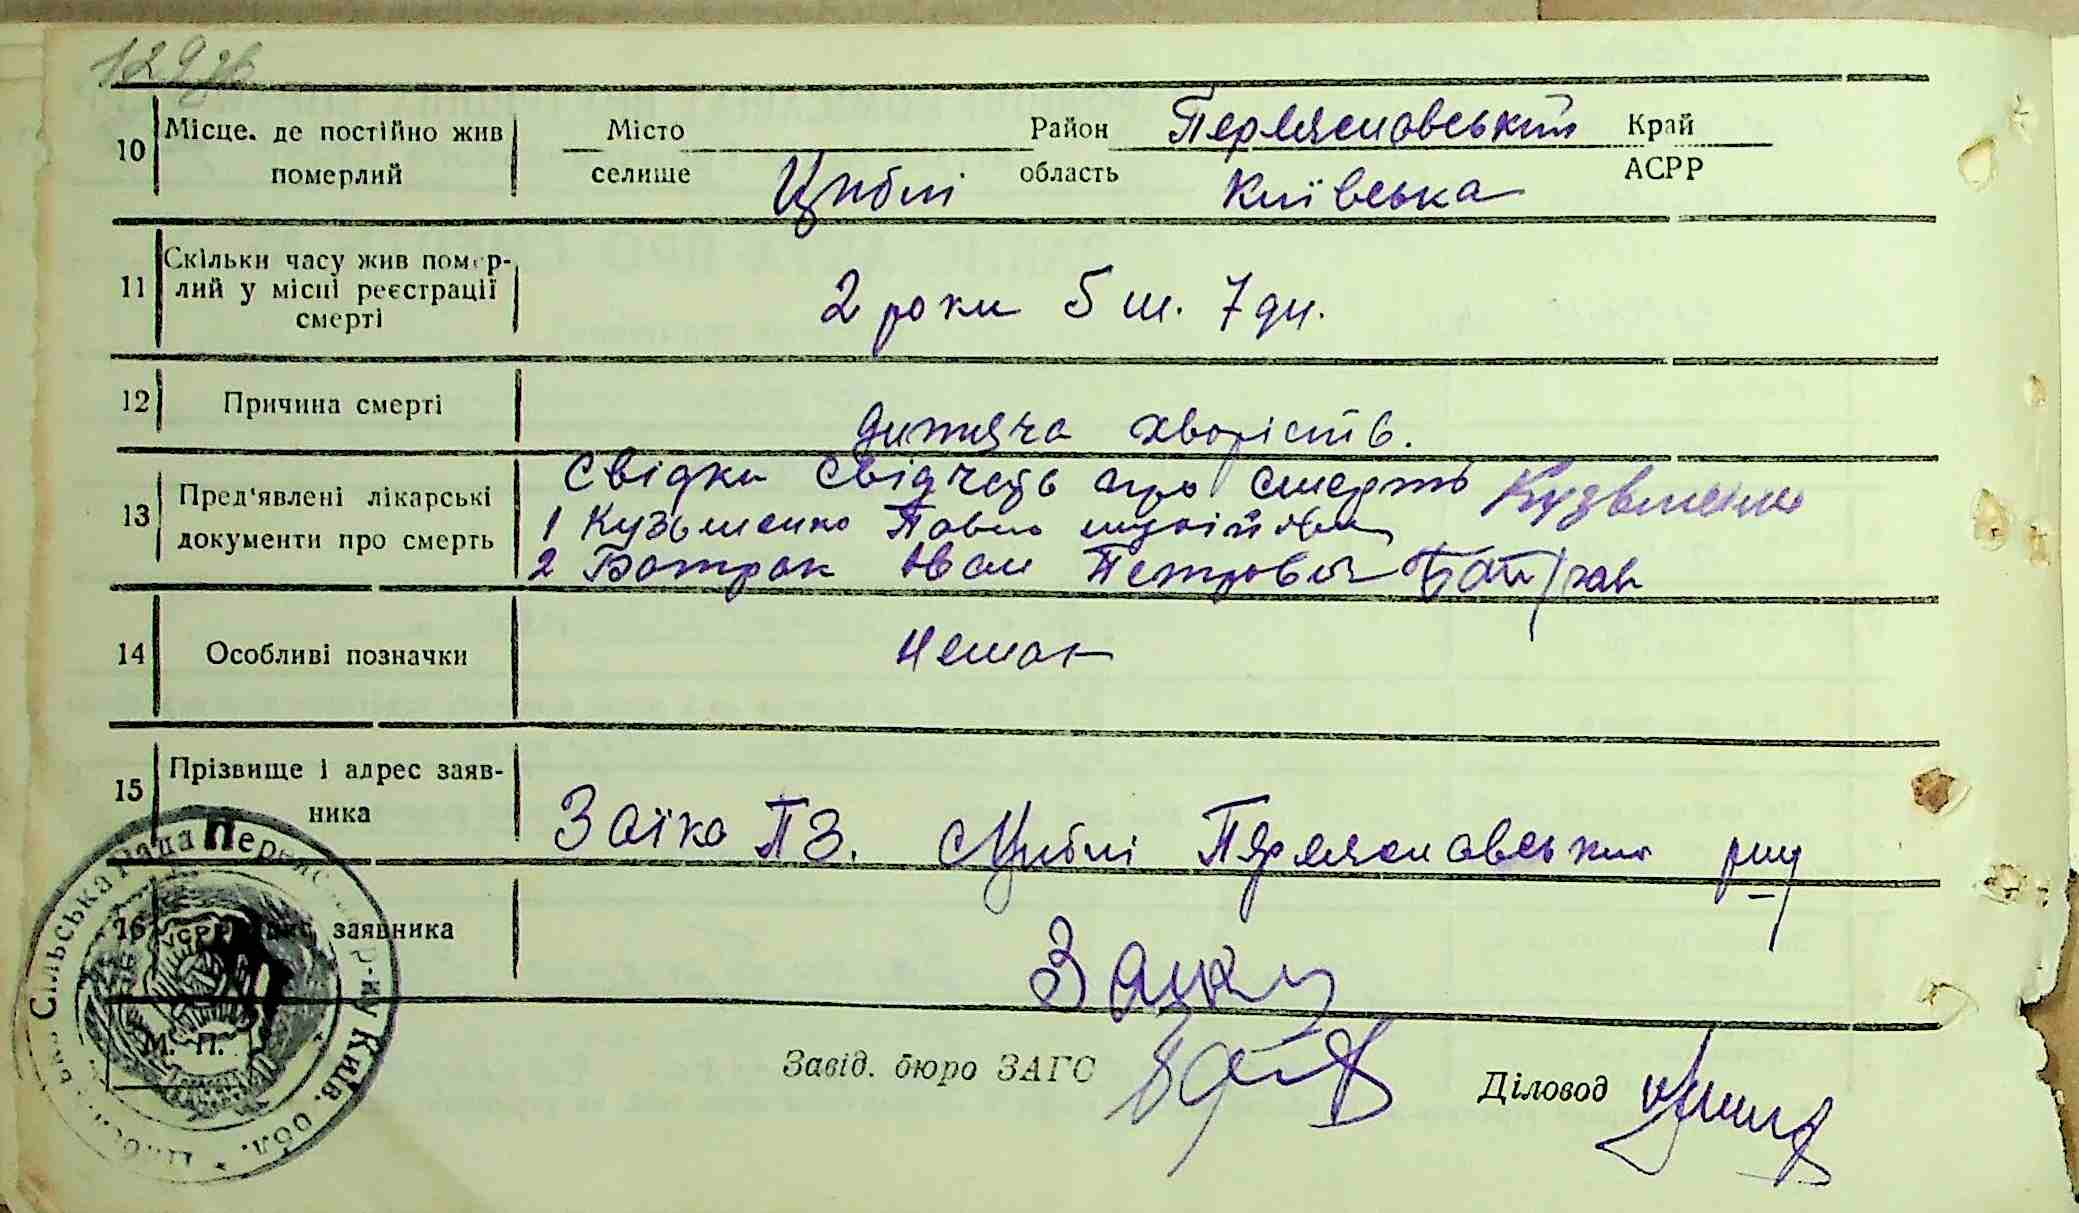 129зв
10 Місце, де постійно жив померлий Місто Район Переяславський Край
селище Циблі область Київська АСРР
11 Скільки часу жив помер-
лий у місці реєстрації
смерті
2 роки 5 м. 7 дн.
12 Причина смерті дитяча хворість.
13 Пред'явлені лікарські
документи про смерть
Свідки свідчать про смерть Кузьменко
1 Кузьменко Павло
2 Батрак Иван Петрович Батрак
14 Особливі позначки немає
15 Прізвище і адрес заяв-
ника
Заїка П З. с Циблі
16 заявника
М. П.
Сільська Рада Київ. обл.
УСРР
Завід. бюро ЗАГС Діловод